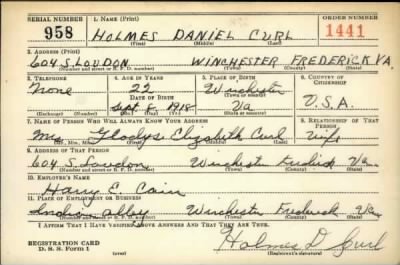 SERIAL NUMBER 1. NAME (Print) ORDER NUMBER
958 HOLMES DANIEL CURL 1441
(First) (Middle) (Last)
2. ADDRESS (Print)
604 S. LOUDON WINCHESTER FREDERICK VA
(Number and street or R. F. D. number) (Town) (County) (State)
3. TELEPHONE 4. AGE IN YEARS 5. PLACE OF BIRTH 6. COUNTRY OF CITIZENSHIP
None 22 Winchester
DATE OF BIRTH (Town or county)
Sept 8, 1918 Va U.S.A.
(Exchange) (Number) (Mo.) (Day) (Yr.) (State or country)
7. NAME OF PERSON WHO WILL ALWAYS KNOW YOUR ADDRESS 8. RELATIONSHIP OF THAT PERSON
Mrs Gladys Elizabeth Curl Wife
(Mr., Mrs., Miss) (First) (Middle) (Last)
9. ADDRESS OF THAT PERSON
604 S. Loudon Winchester Fredrick Va.
(Number and street or R. F. D. number) (Town) (County) (State)
10. EMPLOYER'S NAME
Harry E. Cain
11. PLACE OF EMPLOYMENT OR BUSINESS
Winchester Frederick Va
(Number and street or R. F. D. number) (Town) (County) (State)
I AFFIRM THAT I HAVE VERIFIED ABOVE ANSWERS AND THAT THEY ARE TRUE.
REGISTRATION CARD Holmes D. Curl
D. S. S. Form 1 (Registrant's signature)